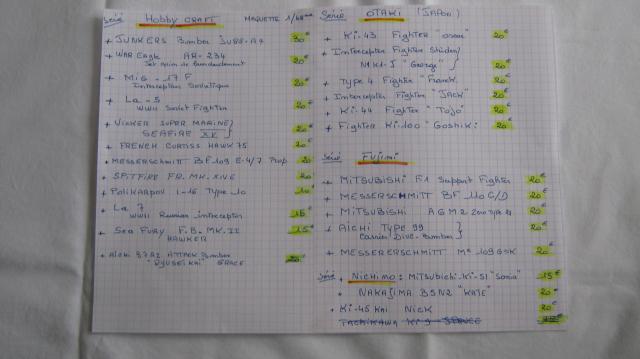 Série Hobby CRAFT MAQUETTE 1/48
+ JUNKERS Bomber JU88-A4 30€
+ WAR Eagle AR-234 20€
+ Mig-17 F 20€
Intercepteur Soviétique
+ La-5 20€
WWII Soviet Fighter
+ Vicker SUPER MARINE } 20€
SEAFIRE XV
+ FRENCH CURTISS HAWK 75 20
+ MESSERSCHMITT BF 109 E-4/7 Trop 20
+ SPITFIRE FR. MK. XIVE 20
+ POLIKARPOV I-16 Type 10 10€
+ La 7 15€
WWII Russian intercepteur
+ Sea FURY F.B. MK. II 15€
HAWKER
+ Aichi B7A2 ATTACK Bomber 20€
"RYUSEI KAI" GRACE
Série OTAKI (JAPON)
+ Ki-43 Fighter "Oscar" 20€
+ Intercepteur Fighter Shiden } 20€
MK1-J "George"
+ Type 4 Fighter "Frank" 20€
+ Intercepteur Fighter "JACK" 20€
+ Ki-44 Fighter "Tojo" 20€
+ Fighter Ki-100 "Goshiki" 20€
Série FUJIMI
+ MITSUBISHI F1 Support Fighter 20€
+ MESSERSCHMITT BF 110 C/D 20€
+ MITSUBISHI A6M2 Zero Type 21 20€
+ AICHI Type 99 } 20€
Carrier Dive-Bomber
+ MESSERERSCHMITT Me 109 G5K 20€
Série + NICHIMO : MITSUBICHI-Ki-51 "Sonia" 15€
+ NAKAJIMA B5N2 "KATE" 20€
+ Ki-45 KAI NICK 20€
TACHIKAWA Ki 9 SPRUCE